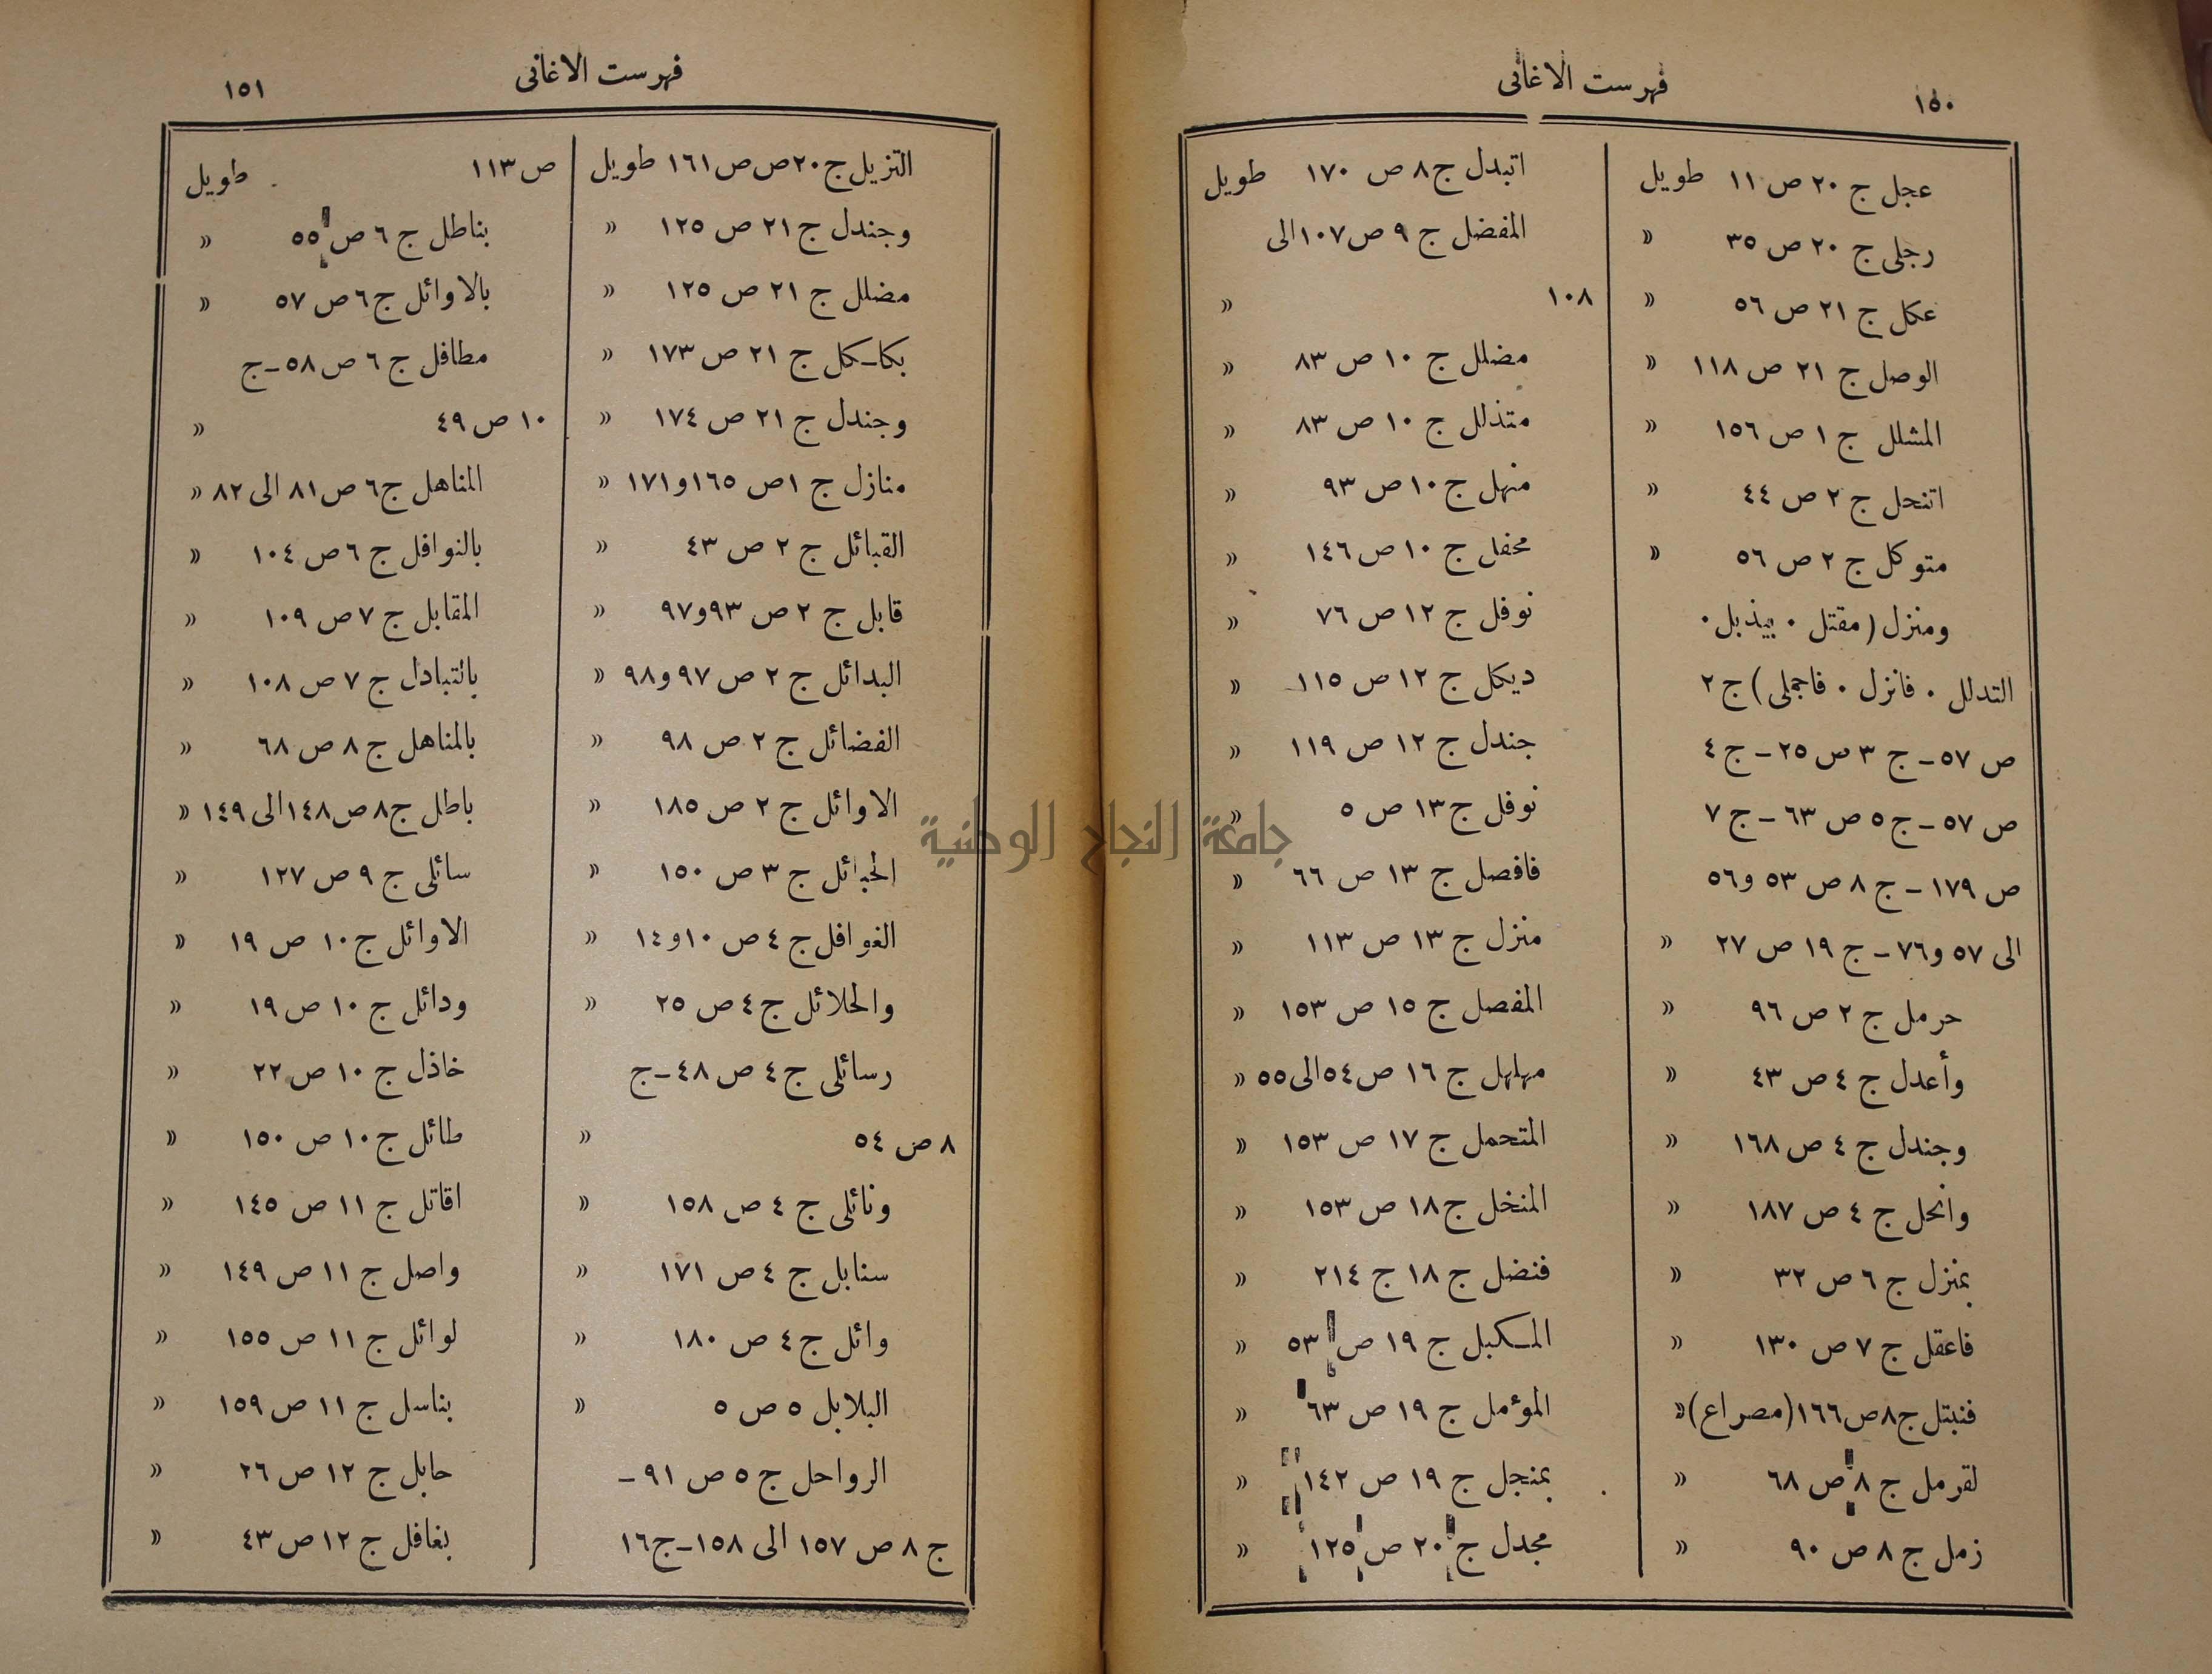 ١٥٠
فهرست الاغانى
عجل ج ٢٠ ص ١١ طويل
رجلى ج ٢٠ ص ٣٥ »
عكل ج ٢١ ص ٥٦ »
الوصل ج ٢١ ص ١١٨ »
المشلل ج ١ ص ١٥٦ »
اتنحل ج ٢ ص ٤٤ »
متوكل ج ٢ ص ٥٦ »
ومنزل (مقتل ٠ بيذبل ٠
التدلل ٠ فانزل ٠ فاجملى) ج ٢
ص ٥٧ – ج ٣ ص ٢٥ – ج ٤
ص ٥٧ – ج ٥ ص ٦٣ – ج ٧
ص ١٧٩ – ج ٨ ص ٥٣ و٥٦
الى ٥٧ و٧٦ – ج ١٩ ص ٢٧ »
حرمل ج ٢ ص ٩٦ »
وأعدل ج ٤ ص ٤٣ »
وجندل ج ٤ ص ١٦٨ »
وانحل ج ٤ ص ١٨٧ »
بمنزل ج ٦ ص ٣٢ »
فاعقل ج ٧ ص ١٣٠ »
فنبتل ج ٨ ص ١٦٦ (مصراع) »
لقرمل ج ٨ ص ٦٨ »
زمل ج ٨ ص ٩٠ »
اتبدل ج ٨ ص ١٧٠ طويل
المفضل ج ٩ ص ١٠٧ الى
١٠٨ »
مضلل ج ١٠ ص ٨٣ »
متذلل ج ١٠ ص ٨٣ »
منهل ج ١٠ ص ٩٣ »
محفل ج ١٠ ص ١٤٦ »
نوفل ج ١٢ ص ٧٦ »
ديكل ج ١٢ ص ١١٥ »
جندل ج ١٢ ص ١١٩ »
نوفل ج ١٣ ص ٥ »
فافصل ج ١٣ ص ٦٦ »
منزل ج ١٣ ص ١١٣ »
المفصل ج ١٥ ص ١٥٣ »
مهلهل ج ١٦ ص ٥٤ الى ٥٥ »
المتحمل ج ١٧ ص ١٥٣ »
المنخل ج ١٨ ص ١٥٣ »
فنضل ج ١٨ ج ٢١٤ »
المكبل ج ١٩ ص ٥٣ »
المؤمل ج ١٩ ص ٦٣ »
بمنجل ج ١٩ ص ١٤٢ »
مجدل ج ٢٠ ص ١٢٥ »
فهرست الاغانى
١٥١
التزيل ج ٢٠ ص ص ١٦١ طويل
وجندل ج ٢١ ص ١٢٥ »
مضلل ج ٢١ ص ١٢٥ »
بكلكل ج ٢١ ص ١٧٣ »
وجندل ج ٢١ ص ١٧٤ »
منازل ج ١ ص ١٦٥ و١٧١ »
القبائل ج ٢ ص ٤٣ »
قابل ج ٢ ص ٩٣ و٩٧ »
البدائل ج ٢ ص ٩٧ و٩٨ »
الفضائل ج ٢ ص ٩٨ »
الاوائل ج ٢ ص ١٨٥ »
الحبائل ج ٣ ص ١٥٠ »
الغوافل ج ٤ ص ١٠ و١٤ »
والحلائل ج ٤ ص ٢٥ »
رسائلى ج ٤ ص ٤٨ – ج
٨ ص ٥٤ »
ونائلى ج ٤ ص ١٥٨ »
سنابل ج ٤ ص ١٧١ »
وائل ج ٤ ص ١٨٠ »
البلابل ٥ ص ٥ »
الرواحل ج ٥ ص ٩١ –
ج ٨ ص ١٥٧ الى ١٥٨ – ج ١٦
ص ١١٣ طويل
بناطل ج ٦ ص ٥٥ »
بالاوائل ج ٦ ص ٥٧ »
مطافل ج ٦ ص ٥٨ – ج
١٠ ص ٤٩ »
المناهل ج ٦ ص ٨١ الى ٨٢ »
بالنوافل ج ٦ ص ١٠٤ »
المقابل ج ٧ ص ١٠٩ »
بالتبادل ج ٧ ص ١٠٨ »
بالمناهل ج ٨ ص ٦٨ »
باطل ج ٨ ص ١٤٨ الى ١٤٩ »
سائلى ج ٩ ص ١٢٧ »
الاوائل ج ١٠ ص ١٩ »
ودائل ج ١٠ ص ١٩ »
خاذل ج ١٠ ص ٢٢ »
طائل ج ١٠ ص ١٥٠ »
اقاتل ج ١١ ص ١٤٥ »
واصل ج ١١ ص ١٤٩ »
لوائل ج ١١ ص ١٥٥ »
بناسل ج ١١ ص ١٥٩ »
حابل ج ١٢ ص ٢٦ »
بغافل ج ١٢ ص ٤٣ »
جامعة النجاح الوطنية